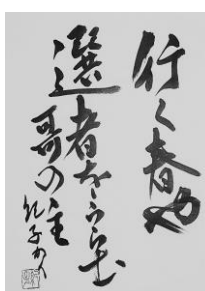 行く春や
選者をうらむ
哥の主
紀子